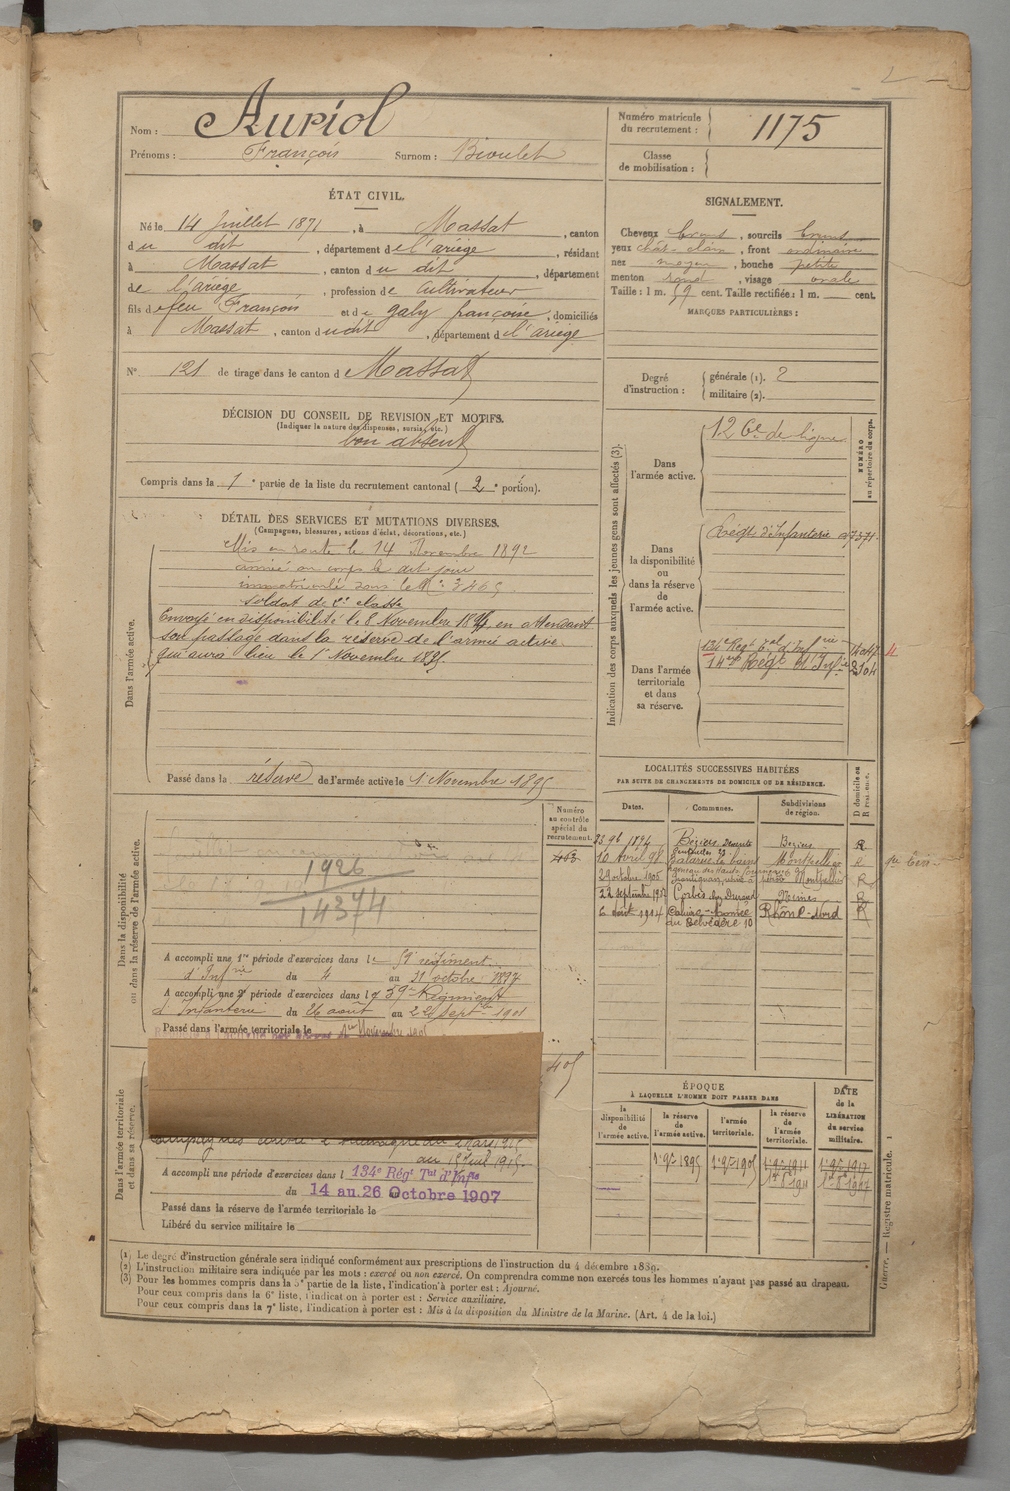 2
Nom : Auriol
Prénoms : François Surnom : Bioulet
Numéro matricule du recrutement : 1175
Classe de mobilisation :
ÉTAT CIVIL.
Né le 14 Juillet 1871, à Massat, canton
du dit, département de l'ariège, résidant
à Massat, canton du dit, département
de l'ariège, profession de cultivateur
fils de feu François et de galy françoise, domiciliés
à Massat, canton du dit, département de l'ariège
N° 121 de tirage dans le canton d Massat
DÉCISION DU CONSEIL DE REVISION ET MOTIFS.
(Indiquer la nature des dispenses, sursis, etc.)
bon absent
Compris dans la 1e partie de la liste du recrutement cantonal (2e portion).
DÉTAIL DES SERVICES ET MUTATIONS DIVERSES.
(Campagnes, blessures, actions d'éclat, décorations, etc.)
Dans l'armée active.
Mis en route le 14 Novembre 1892
arrivé au corps le dit jour
immatriculé sous le N° 3465
soldat de 2e classe
Envoyé en disponibilité le 8 Novembre, en attendant
son passage dans la réserve de l'armée active
qui aura lieu le 1er Novembre 1895.
Passé dans la réserve de l'armée active le 1 Novembre 1895
Dans la disponibilité ou dans la réserve de l'armée active.
Numéro au contrôle spécial du recrutement.
1926
14374
A accompli une 1re période d'exercices dans le régiment
d'Infrie du 4 au 31 octobre 1897
A accompli une 2e période d'exercices dans l 59e Régiment
d'Infanterie du 26 août au 22 septbre 1901
Passé dans l'armée territoriale le 1er Novembre 1905
Dans l'armée territoriale et dans sa réserve.
405
Campagnes contre l'Allemagne du 2 mars 1915
au 1915.
A accompli une période d'exercices dans l 134e Régt Tal d'Infie
du 14 au 26 Octobre 1907
Passé dans la réserve de l'armée territoriale le
Libéré du service militaire le
SIGNALEMENT.
Cheveux bruns, sourcils bruns
yeux chât-clair, front ordinaire
nez moyen, bouche petite
menton rond, visage ovale
Taille : 1 m. 59 cent. Taille rectifiée : 1 m. cent.
MARQUES PARTICULIÈRES :
Degré d'instruction : générale (1). 2
militaire (2).
Indication des corps auxquels les jeunes gens sont affectés (3).
NUMÉRO au répertoire du corps.
Dans l'armée active. 12 de ligne
Dans la disponibilité ou dans la réserve de l'armée active. Régt d'Infanterie
Dans l'armée territoriale et dans sa réserve. 134e Régt Tal d'Infrie
14e Régt d'Infie 2104
LOCALITÉS SUCCESSIVES HABITÉES
PAR SUITE DE CHANGEMENTS DE DOMICILE OU DE RÉSIDENCE.
Dates. Communes. Subdivisions de région. D domicile ou R résidence.
1894 Béziers Béziers R
10 Avril 98 Balaruc les bains Montpellier R
octobre 1905 Montpellier R
22 septembre Nîmes R
6 août 1914 Caluire Rhône-Nord R
au Belvédère 10
ÉPOQUE
À LAQUELLE L'HOMME DOIT PASSER DANS
la disponibilité de l'armée active. la réserve de l'armée active. l'armée territoriale. la réserve de l'armée territoriale. DATE de la LIBÉRATION du service militaire.
1er 9bre 1895 1er 9bre 1905 1er 9bre 1911 1er 9bre 1917
Guerre. — Registre matricule. 1
(1) Le degré d'instruction générale sera indiqué conformément aux prescriptions de l'instruction du 4 décembre 1889.
(2) L'instruction militaire sera indiquée par les mots : exercé ou non exercé. On comprendra comme non exercés tous les hommes n'ayant pas passé au drapeau.
(3) Pour les hommes compris dans la 5e partie de la liste, l'indication à porter est : Ajourné.
Pour ceux compris dans la 6e liste, l'indication à porter est : Service auxiliaire.
Pour ceux compris dans la 7e liste, l'indication à porter est : Mis à la disposition du Ministre de la Marine. (Art. 4 de la loi.)